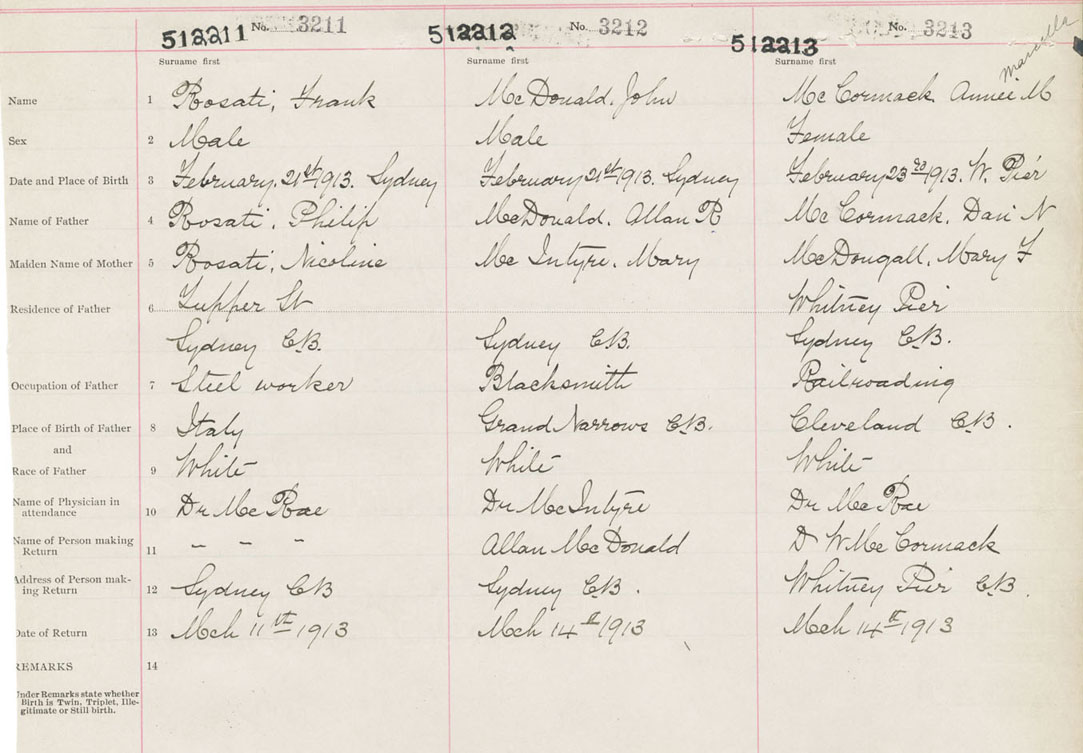 512211 No. 3211 512212 No. 3212 512213 No. 3213
Surname first Surname first Surname first Marcella
Name 1 Rosati, Frank McDonald, John McCormack, Annie M
Sex 2 Male Male Female
Date and Place of Birth 3 February, 21st 1913. Sydney February 21st 1913. Sydney February 23rd 1913. W. Pier
Name of Father 4 Rosati, Philip McDonald, Allan R McCormack, Dan N
Maiden Name of Mother 5 Rosati, Nicoline McIntyre, Mary McDougall, Mary F
Residence of Father 6 Tupper St Whitney Pier
Sydney C.B. Sydney C.B. Sydney C.B.
Occupation of Father 7 Steel worker Blacksmith Railroading
Place of Birth of Father 8 Italy Grand Narrows C.B. Cleveland C.B.
and
Race of Father 9 White White White
Name of Physician in attendance 10 Dr McRae Dr McIntyre Dr McRae
Name of Person making Return 11 - - - Allan McDonald D W McCormack
Address of Person making Return 12 Sydney CB Sydney C.B. Whitney Pier C.B.
Date of Return 13 Mch 11th 1913 Mch 14th 1913 Mch 14th 1913
REMARKS 14
Under Remarks state whether
Birth is Twin, Triplet, Ille-
gitimate or Still birth.